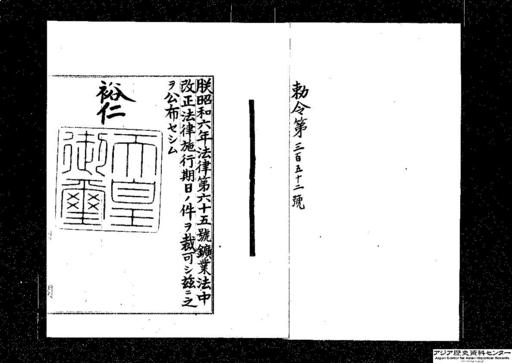 勅令第三百五十二號
朕昭和六年法律第六十五號鑛業法中
改正法律施行期日ノ件ヲ裁可シ茲ニ之
ヲ公布セシム
裕仁
天皇
御璽
アジア歴史資料センター
Japan Center for Asian Historical Records